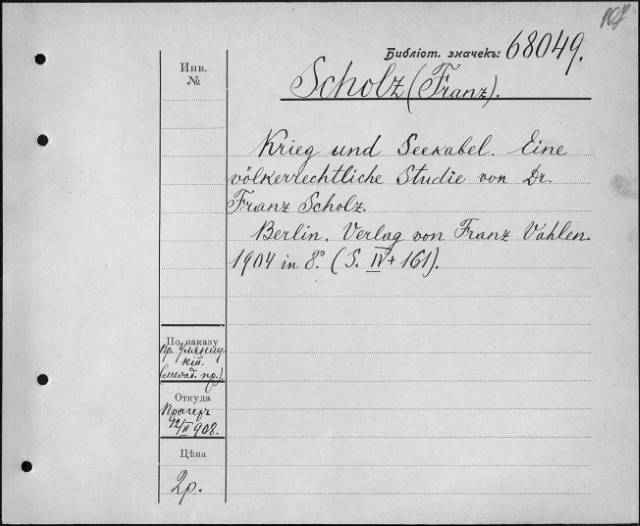 107
Библіот. значекъ: 68049.
Инв.
№
Scholz (Franz).
Krieg und Seekabel. Eine
völkerrechtliche Studie von Dr.
Franz Scholz.
Berlin. Verlag von Franz Vahlen.
1904 in 8.° (S. IV + 161).
По заказу
кій.
пр.).
Откуда
12/II 908.
Цѣна
2р.